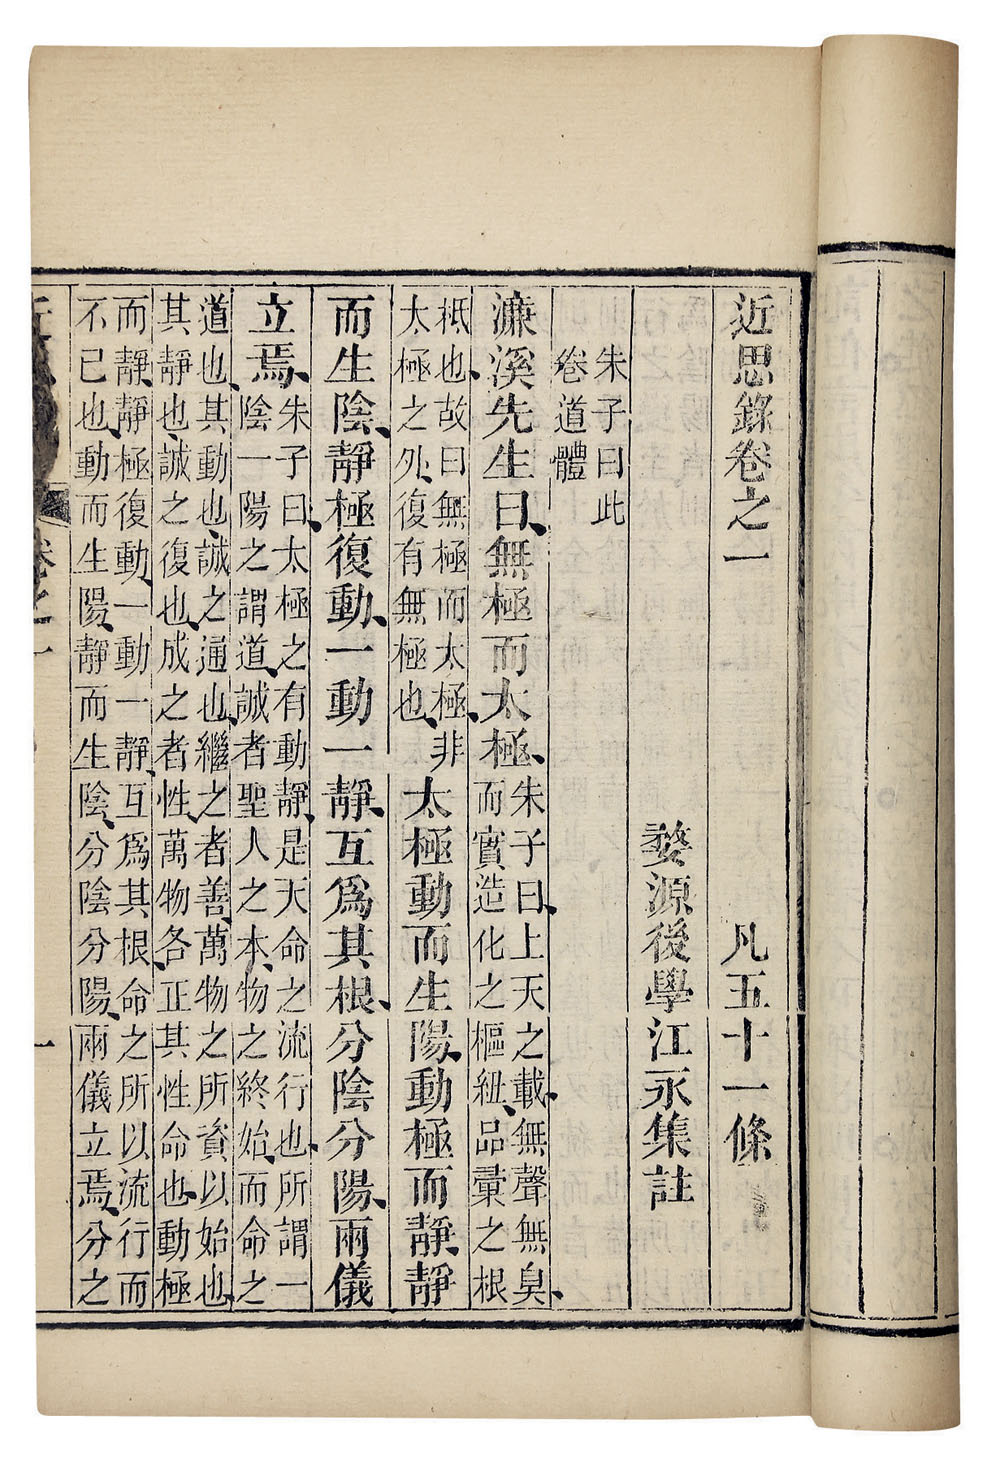 近思錄卷之一
凡五十一條
婺源後學江永集註
朱子曰此
卷道體
濂溪先生曰無極而太極
朱子曰上天之載無聲無臭
而實造化之樞紐品彙之根
柢也故曰無極而太極非
太極之外復有無極也
太極動而生陽動極而靜靜
而生陰靜極復動一動一靜互爲其根分陰分陽兩儀
立焉
朱子曰太極之有動靜是天命之流行也所謂一
陰一陽之謂道誠者聖人之本物之終始而命之
道也其動也誠之通也繼之者善萬物之所資以始也
其靜也誠之復也成之者性萬物各正其性命也動極
而靜靜極復動一動一靜互爲其根命之所以流行而
不已也動而生陽靜而生陰分陰分陽兩儀立焉分之
卷之一
一